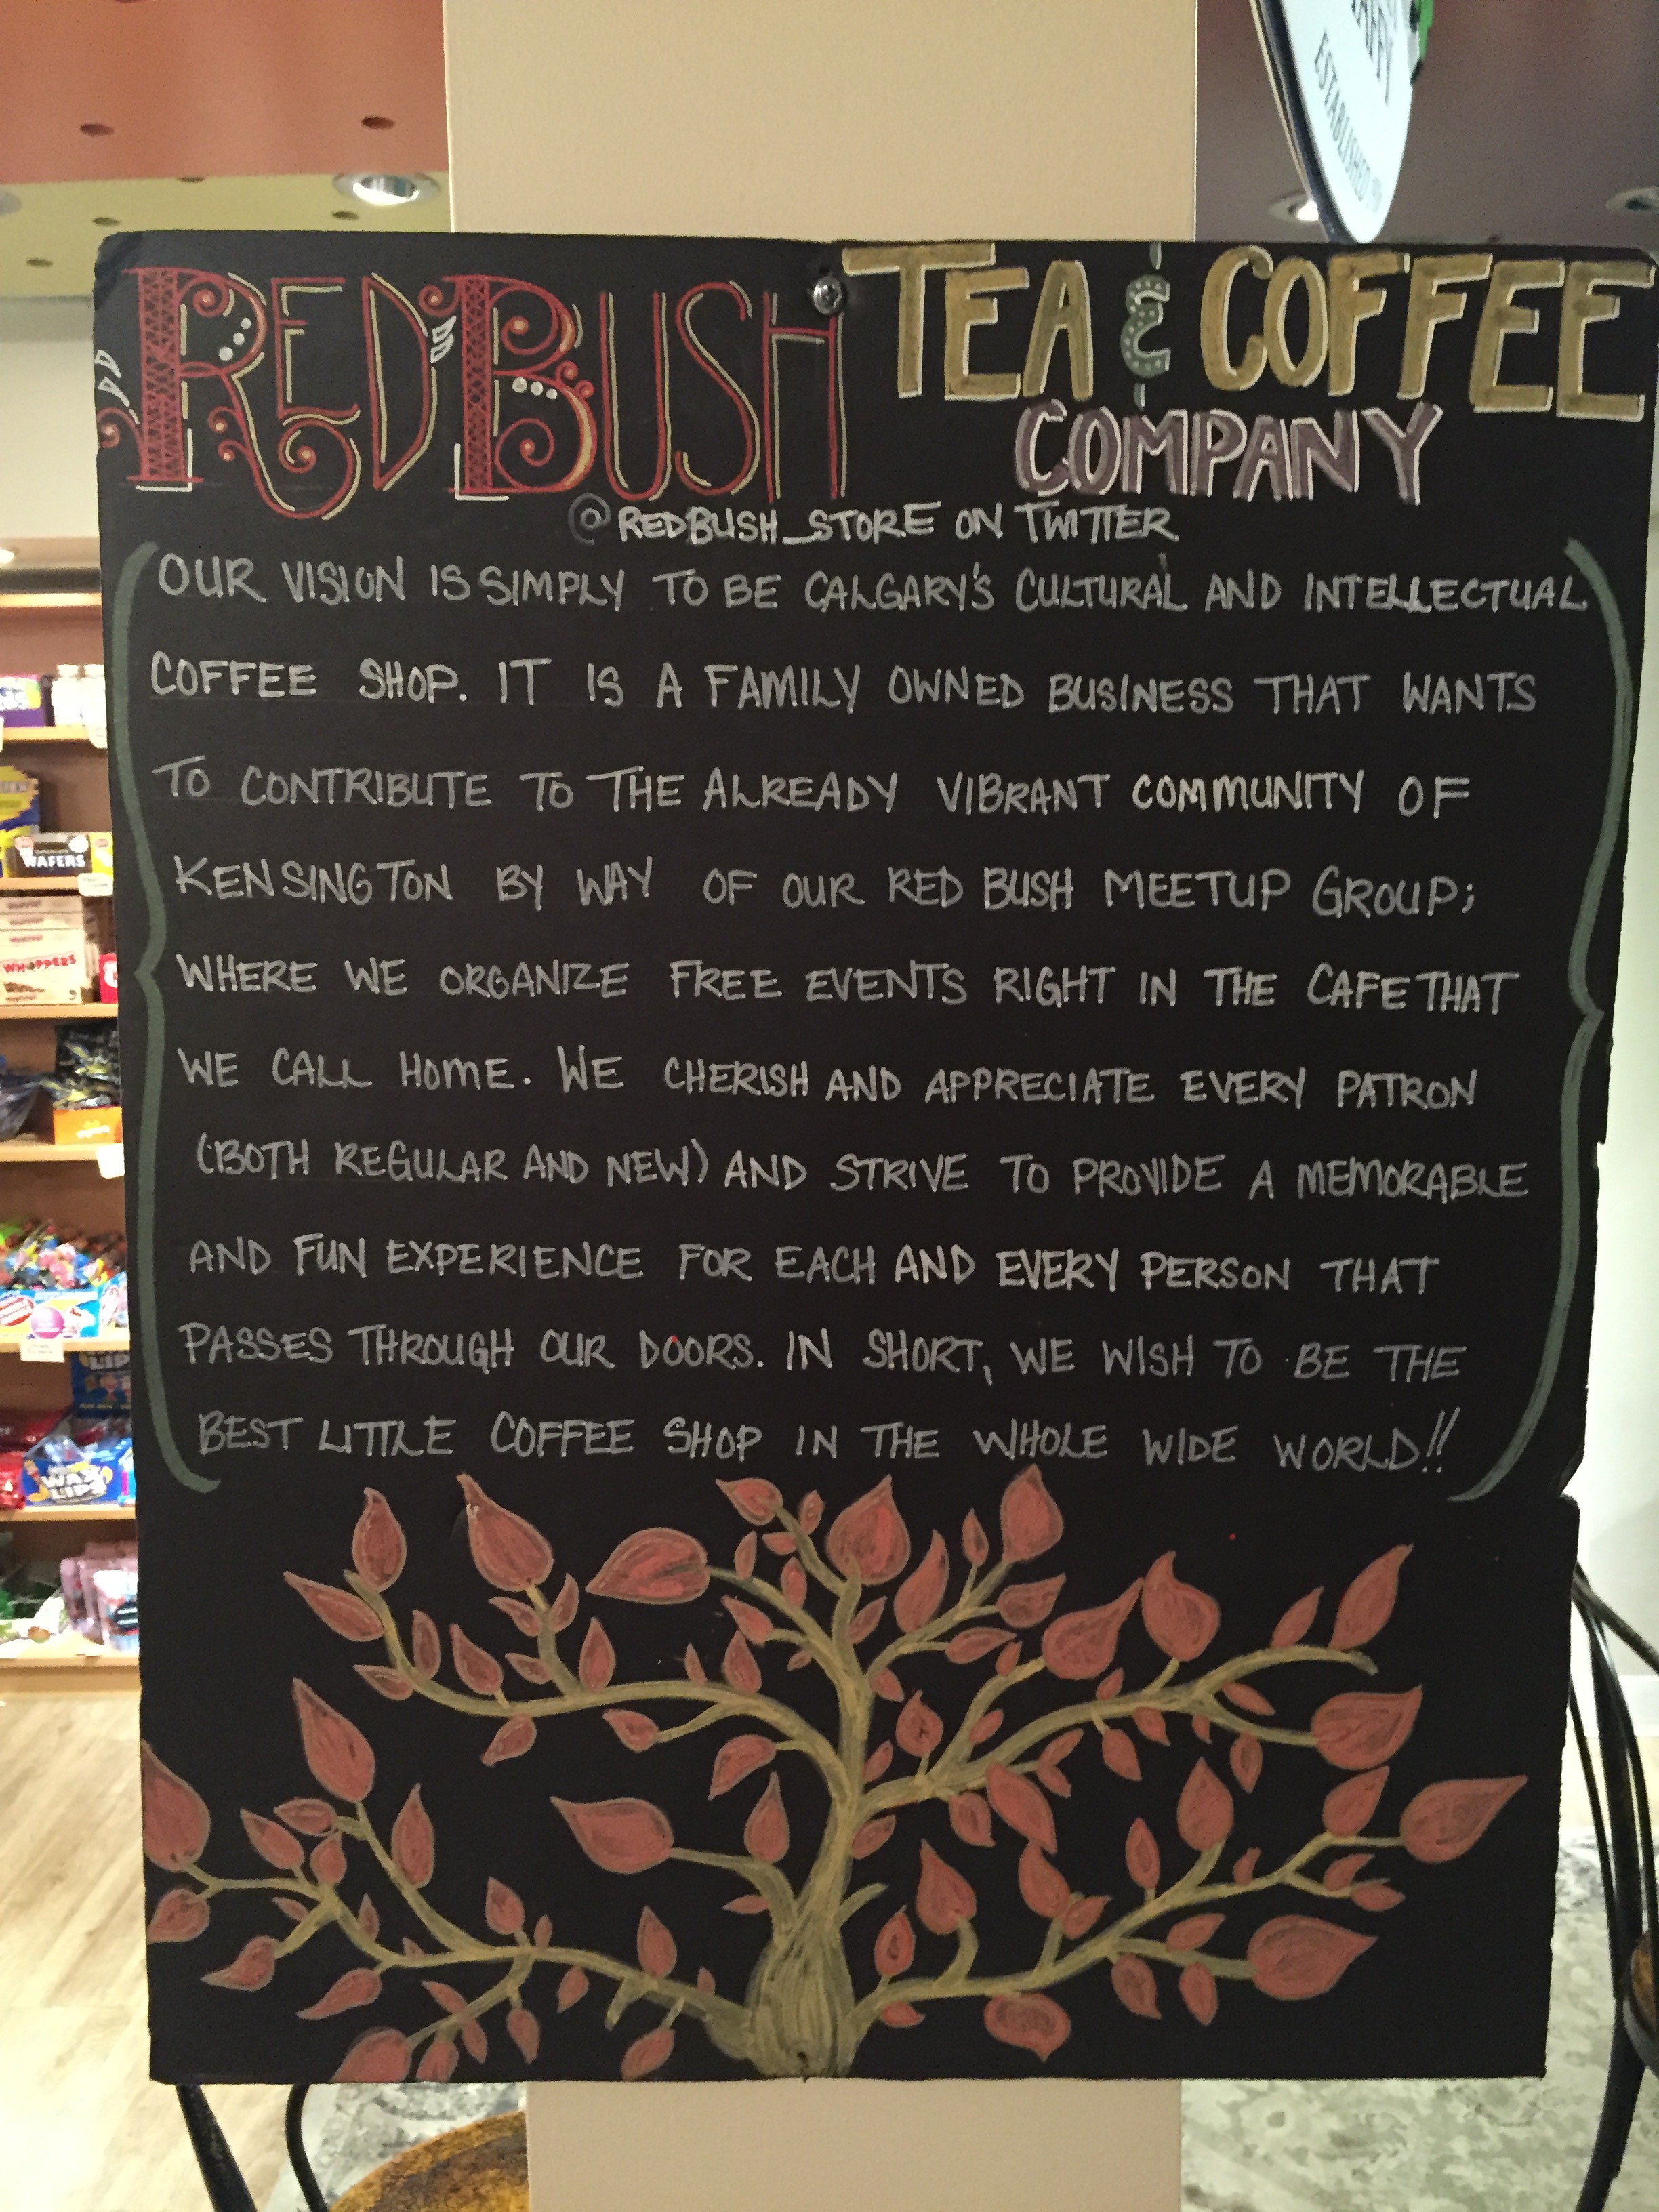 AFFY
ESTABLISHED
REDBUSH TEA & COFFEE
COMPANY
@REDBUSH_STORE ON TWITTER
OUR VISION IS SIMPLY TO BE CALGARY'S CULTURAL AND INTELLECTUAL
COFFEE SHOP. IT IS A FAMILY OWNED BUSINESS THAT WANTS
TO CONTRIBUTE TO THE ALREADY VIBRANT COMMUNITY OF
KENSINGTON BY WAY OF OUR RED BUSH MEETUP GROUP;
WHERE WE ORGANIZE FREE EVENTS RIGHT IN THE CAFE THAT
WE CALL HOME. WE CHERISH AND APPRECIATE EVERY PATRON
(BOTH REGULAR AND NEW) AND STRIVE TO PROVIDE A MEMORABLE
AND FUN EXPERIENCE FOR EACH AND EVERY PERSON THAT
PASSES THROUGH OUR DOORS. IN SHORT, WE WISH TO BE THE
BEST LITTLE COFFEE SHOP IN THE WHOLE WIDE WORLD!!
WAFERS
WHOPPERS
WAX
LIPS